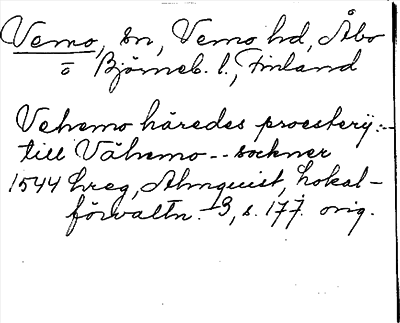 Vemo, sn, Vemo hd, Åbo
o Björneb. l., Finland
Vehemo häredes proesterij:-
till Vähemo -- sockner
1544 hreg, Almquist, Lokal-
förvaltn. 3, s. 177. orig.